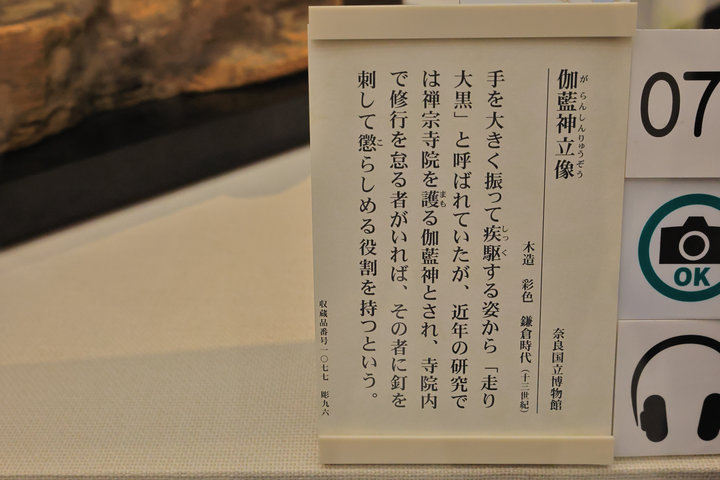 伽藍神立像
がらんしんりゅうぞう
奈良国立博物館
木造 彩色 鎌倉時代(十三世紀)
手を大きく振って疾駆する姿から「走り
しっく
大黒」と呼ばれていたが、近年の研究で
は禅宗寺院を護る伽藍神とされ、寺院内
まも
で修行を怠る者がいれば、その者に釘を
刺して懲らしめる役割を持つという。
こ
収蔵品番号一〇七七 彫九六
07
OK